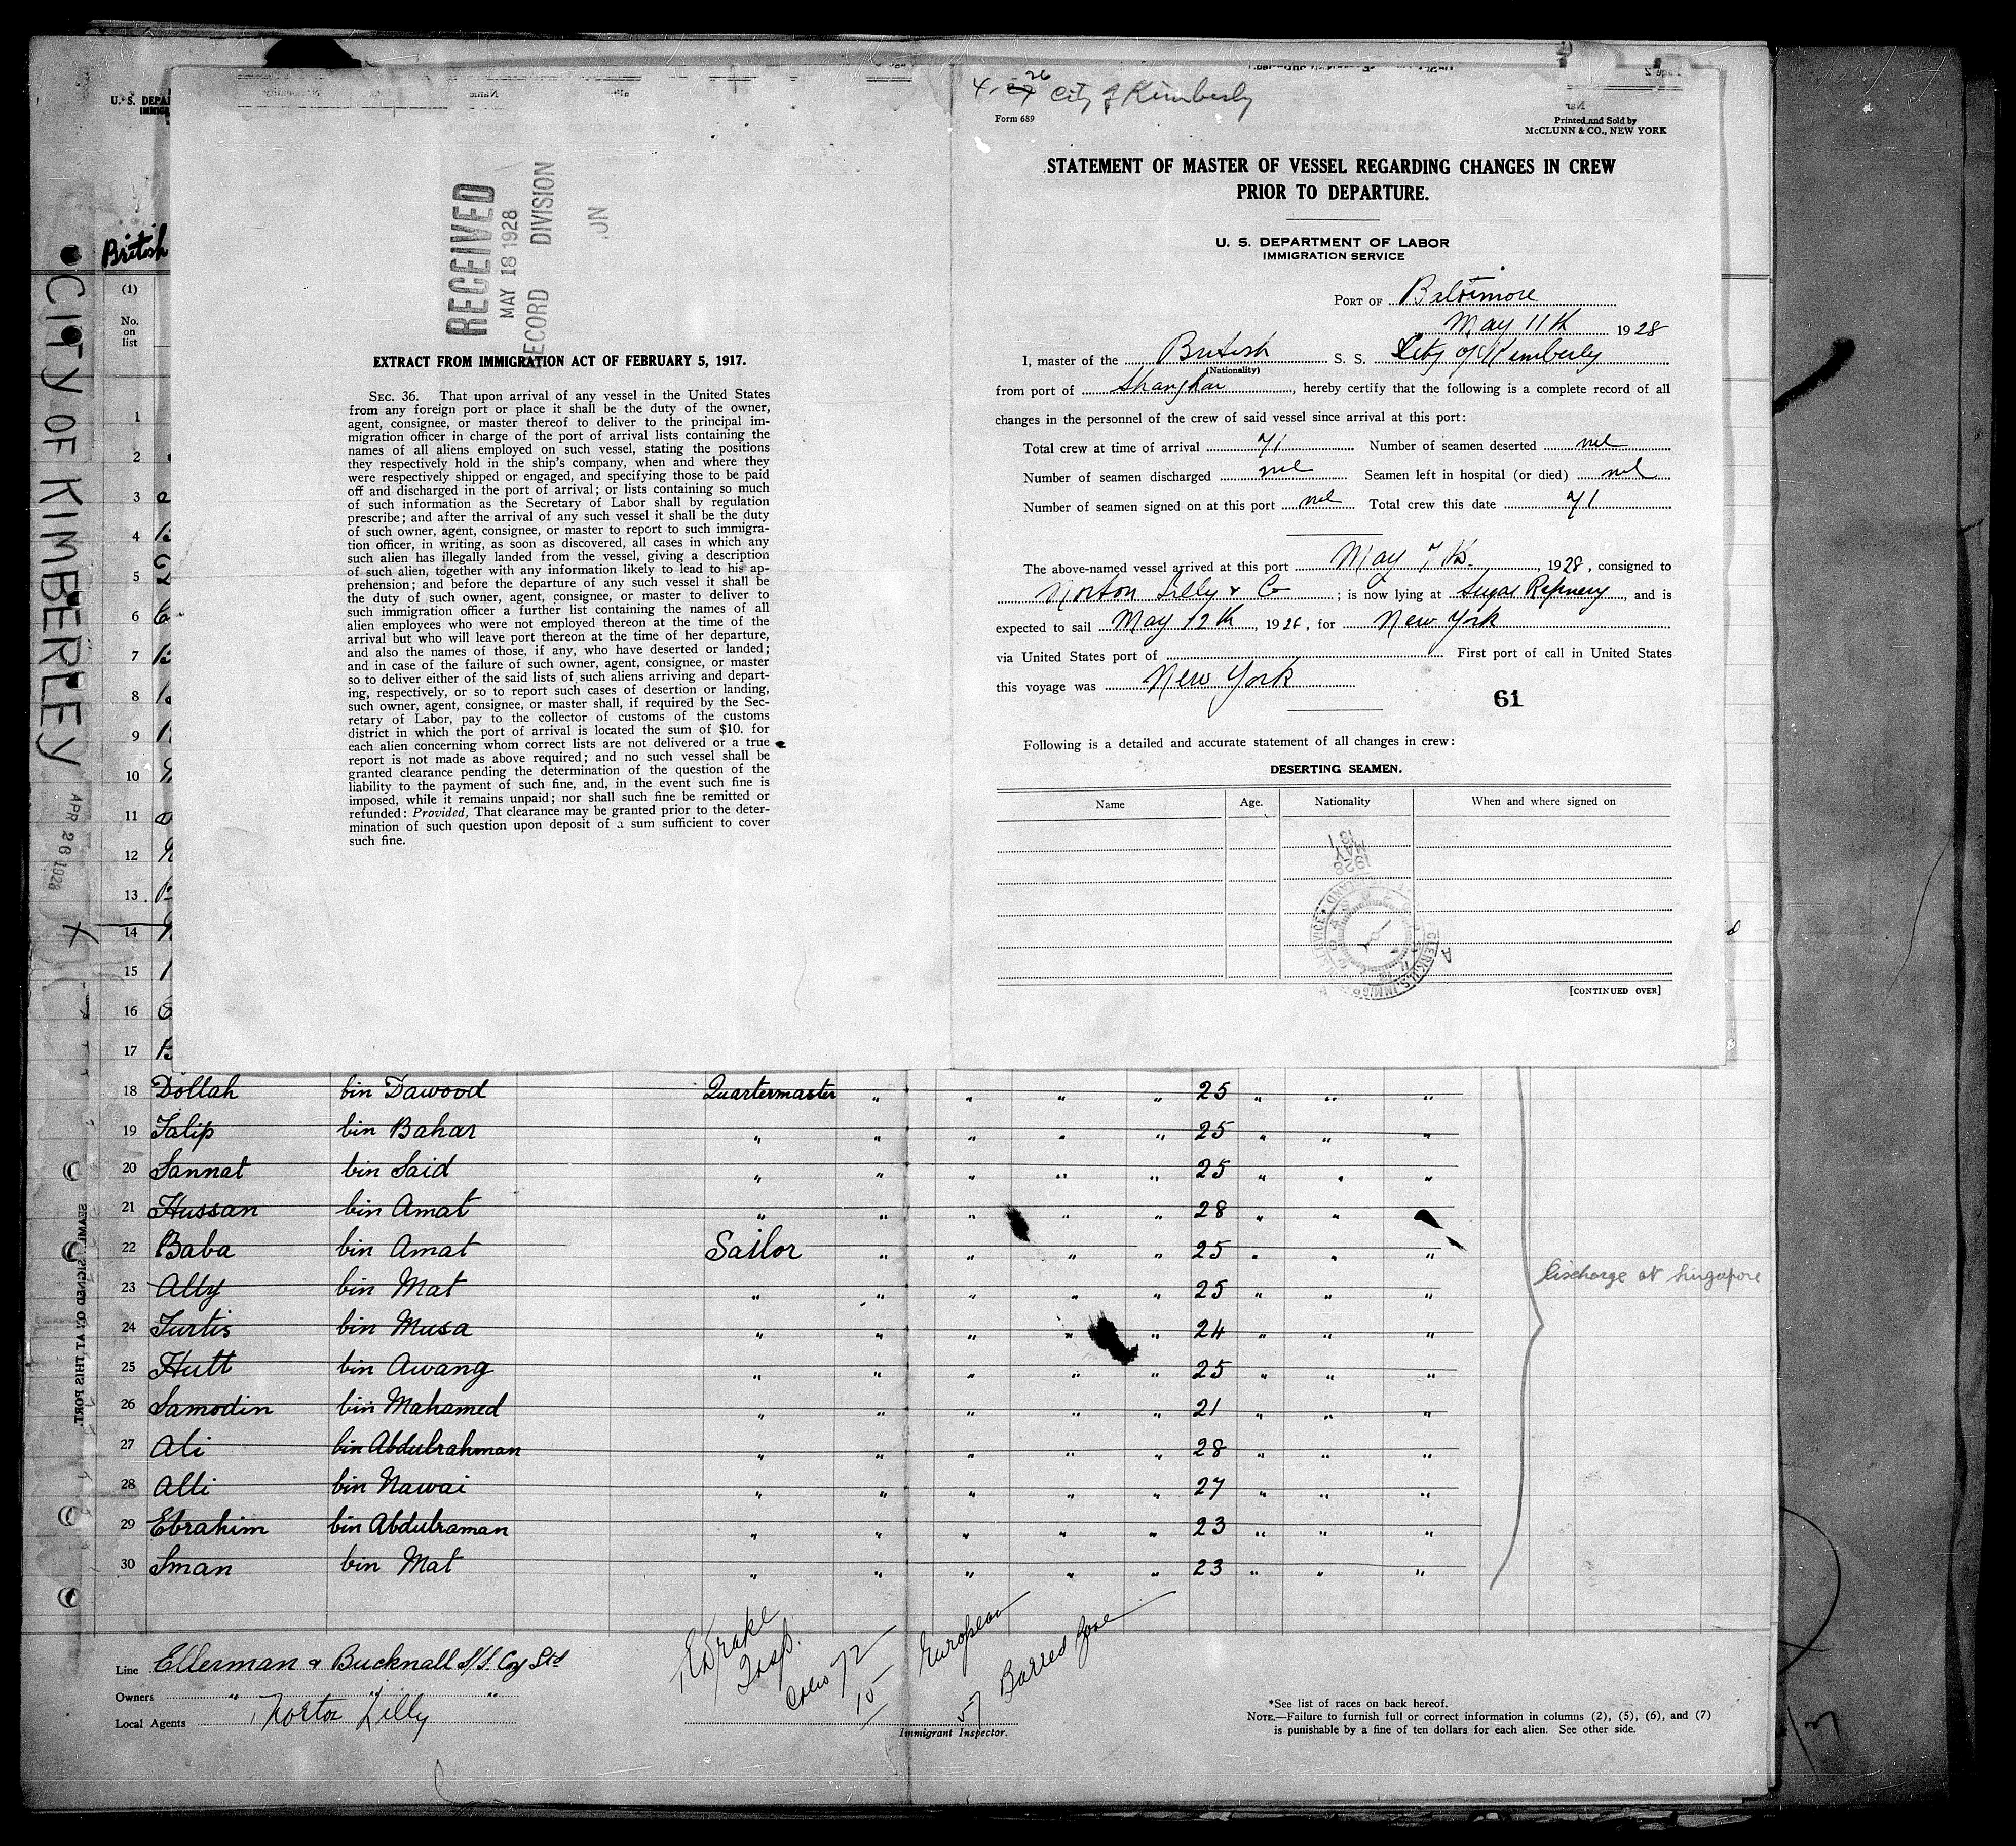 U. S. DEPA
IMMIG
British
(1)
No.
on
list
1
2
3
4
5
6
7
8
9
10
11
12
13
14
15
16
17
CITY OF KIMBERLEY
APR 26 1928
X
RECEIVED
MAY 18 1928
ECORD DIVISION
EXTRACT FROM IMMIGRATION ACT OF FEBRUARY 5, 1917.
SEC. 36. That upon arrival of any vessel in the United States
from any foreign port or place it shall be the duty of the owner,
agent, consignee, or master thereof to deliver to the principal im-
migration officer in charge of the port of arrival lists containing the
names of all aliens employed on such vessel, stating the positions
they respectively hold in the ship's company, when and where they
were respectively shipped or engaged, and specifying those to be paid
off and discharged in the port of arrival; or lists containing so much
of such information as the Secretary of Labor shall by regulation
prescribe; and after the arrival of any such vessel it shall be the duty
of such owner, agent, consignee, or master to report to such immigra-
tion officer, in writing, as soon as discovered, all cases in which any
such alien has illegally landed from the vessel, giving a description
of such alien, together with any information likely to lead to his ap-
prehension; and before the departure of any such vessel it shall be
the duty of such owner, agent, consignee, or master to deliver to
such immigration officer a further list containing the names of all
alien employees who were not employed thereon at the time of the
arrival but who will leave port thereon at the time of her departure,
and also the names of those, if any, who have deserted or landed;
and in case of the failure of such owner, agent, consignee, or master
so to deliver either of the said lists of such aliens arriving and depart-
ing, respectively, or so to report such cases of desertion or landing,
such owner, agent, consignee, or master shall, if required by the Sec-
retary of Labor, pay to the collector of customs of the customs
district in which the port of arrival is located the sum of $10. for
each alien concerning whom correct lists are not delivered or a true
report is not made as above required; and no such vessel shall be
granted clearance pending the determination of the question of the
liability to the payment of such fine, and, in the event such fine is
imposed, while it remains unpaid; nor shall such fine be remitted or
refunded: Provided, That clearance may be granted prior to the deter-
mination of such question upon deposit of a sum sufficient to cover
such fine.
4-26 City of Kimberly
Form 689
Printed and Sold by
McCLUNN & CO., NEW YORK
STATEMENT OF MASTER OF VESSEL REGARDING CHANGES IN CREW
PRIOR TO DEPARTURE.
U. S. DEPARTMENT OF LABOR
IMMIGRATION SERVICE
PORT OF Baltimore
May 11th 1928
I, master of the British S. S. City of Kimberly
(Nationality)
from port of Shanghai, hereby certify that the following is a complete record of all
changes in the personnel of the crew of said vessel since arrival at this port:
Total crew at time of arrival 71 Number of seamen deserted nil
Number of seamen discharged nil Seamen left in hospital (or died) nil
Number of seamen signed on at this port nil Total crew this date 71
The above-named vessel arrived at this port May 7th, 1928, consigned to
Norton Lilly & Co; is now lying at Sugar Refinery, and is
expected to sail May 12th, 1926, for New York
via United States port of First port of call in United States
this voyage was New York
61
Following is a detailed and accurate statement of all changes in crew:
DESERTING SEAMEN.
Name Age. Nationality When and where signed on
MAY 1928
[CONTINUED OVER]
18 Dollah bin Dawood Quartermaster " " " " 25 " " "
19 Talip bin Bahar " " " " " 25 " " "
20 Sannat bin Said " " " " " 25 " " "
21 Hussan bin Amat " " " " " 28 " "
22 Baba bin Amat Sailor " " " " 25 " " "
23 Ally bin Mat " " " " " 25 " " "
24 Turtis bin Musa " " " " " 24 " " "
25 Hutt bin Awang " " " " " 25 " " "
26 Samodin bin Mahamed " " " " " 21 " " "
27 Ali bin Abdulrahman " " " " " 28 " " "
28 Alli bin Nawai " " " " " 27 " " "
29 Ebrahim bin Abdulraman " " " " " 23 " " "
30 Iman bin Mat " " " " " 23 " " "
Discharge at Singapore
SIGNED ON AT THIS PORT.
Line Ellerman & Bucknall S/S. Coy Ltd
Owners " " "
Local Agents Norton Lilly
Drake
Insp.
72
15 European
57 Barred Zone
Immigrant Inspector.
*See list of races on back hereof.
NOTE.—Failure to furnish full or correct information in columns (2), (5), (6), and (7)
is punishable by a fine of ten dollars for each alien. See other side.